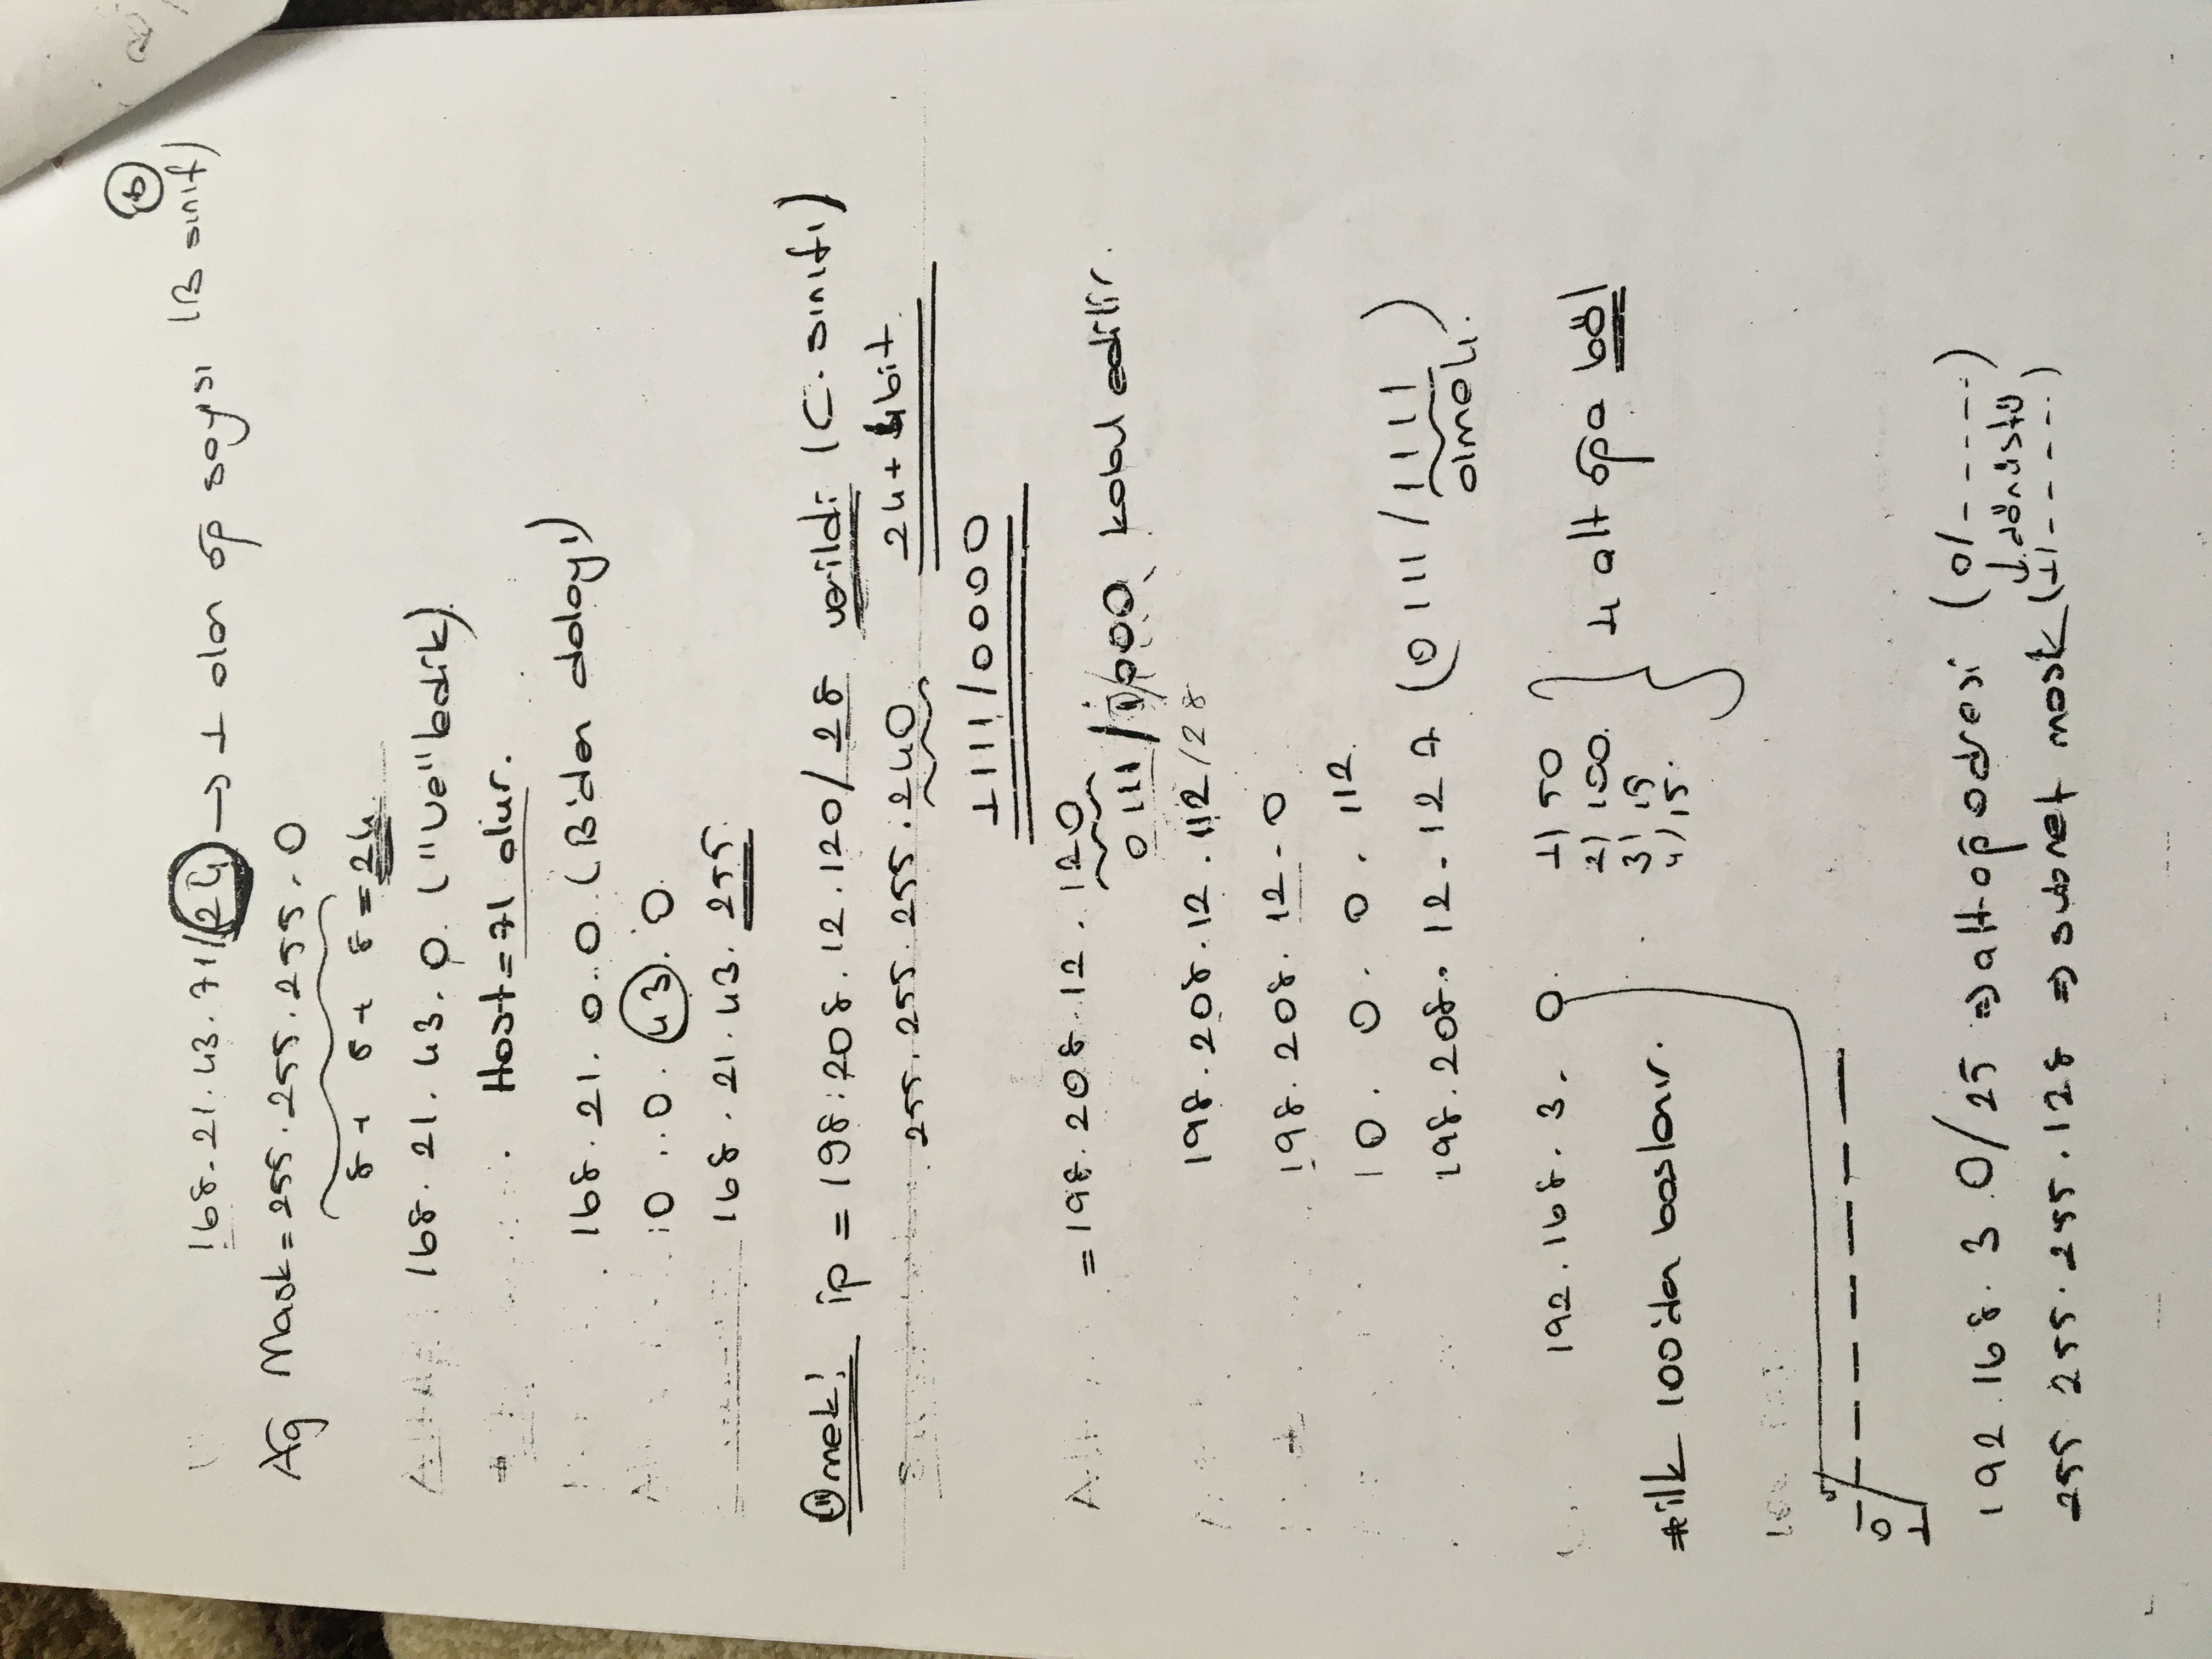 6
168.21.43.71/24 → 1 olan ağ sayısı (B sınıf)
Ağ Mask = 255.255.255.0
8 + 8 + 8 = 24
168.21.43.0 ("Ve"ledik)
Host = 71 olur.
168.21.0.0 (B'den dolayı)
0.0.43.0
168.21.43.255
Örnek! ip = 198.208.12.120/28 verildi (C. sınıfı)
255.255.255.240 24+4bit
1111/0000
= 198.208.12.120
0111/0000 kabul edilir.
198.208.12.112/28
198.208.12.0
0.0.0.112
198.208.12.127 (0111/1111)
olmalı.
192.168.3.0
1) 50
2) 100
3) 15
4) 15
4 alt ağa böl
*ilk 100'den başlanır.
0
1
192.168.3.0/25 ⇒ alt ağ adresi (0/-----)
↓ dönüştü
255 255.255.128 ⇒ subnet mask (1/-----)